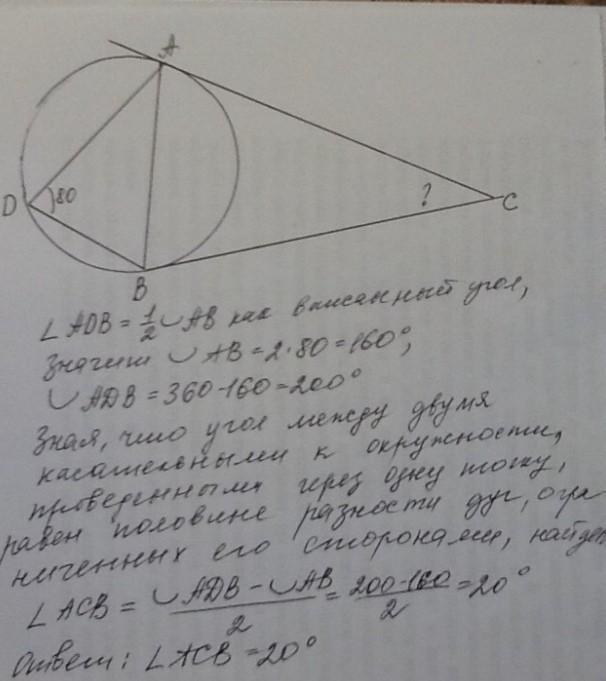 A
D
80
?
C
B
∠ADB = 1/2 ◡AB как вписанный угол,
значит ◡AB = 2·80 = 160°,
◡ADB = 360-160 = 200°
Зная, что угол между двумя
касательными к окружности,
проведенными через одну точку,
равен половине разности дуг, огра
ниченных его сторонами, найдем
∠ACB = (◡ADB - ◡AB)/2 = (200-160)/2 = 20°
Ответ: ∠ACB = 20°